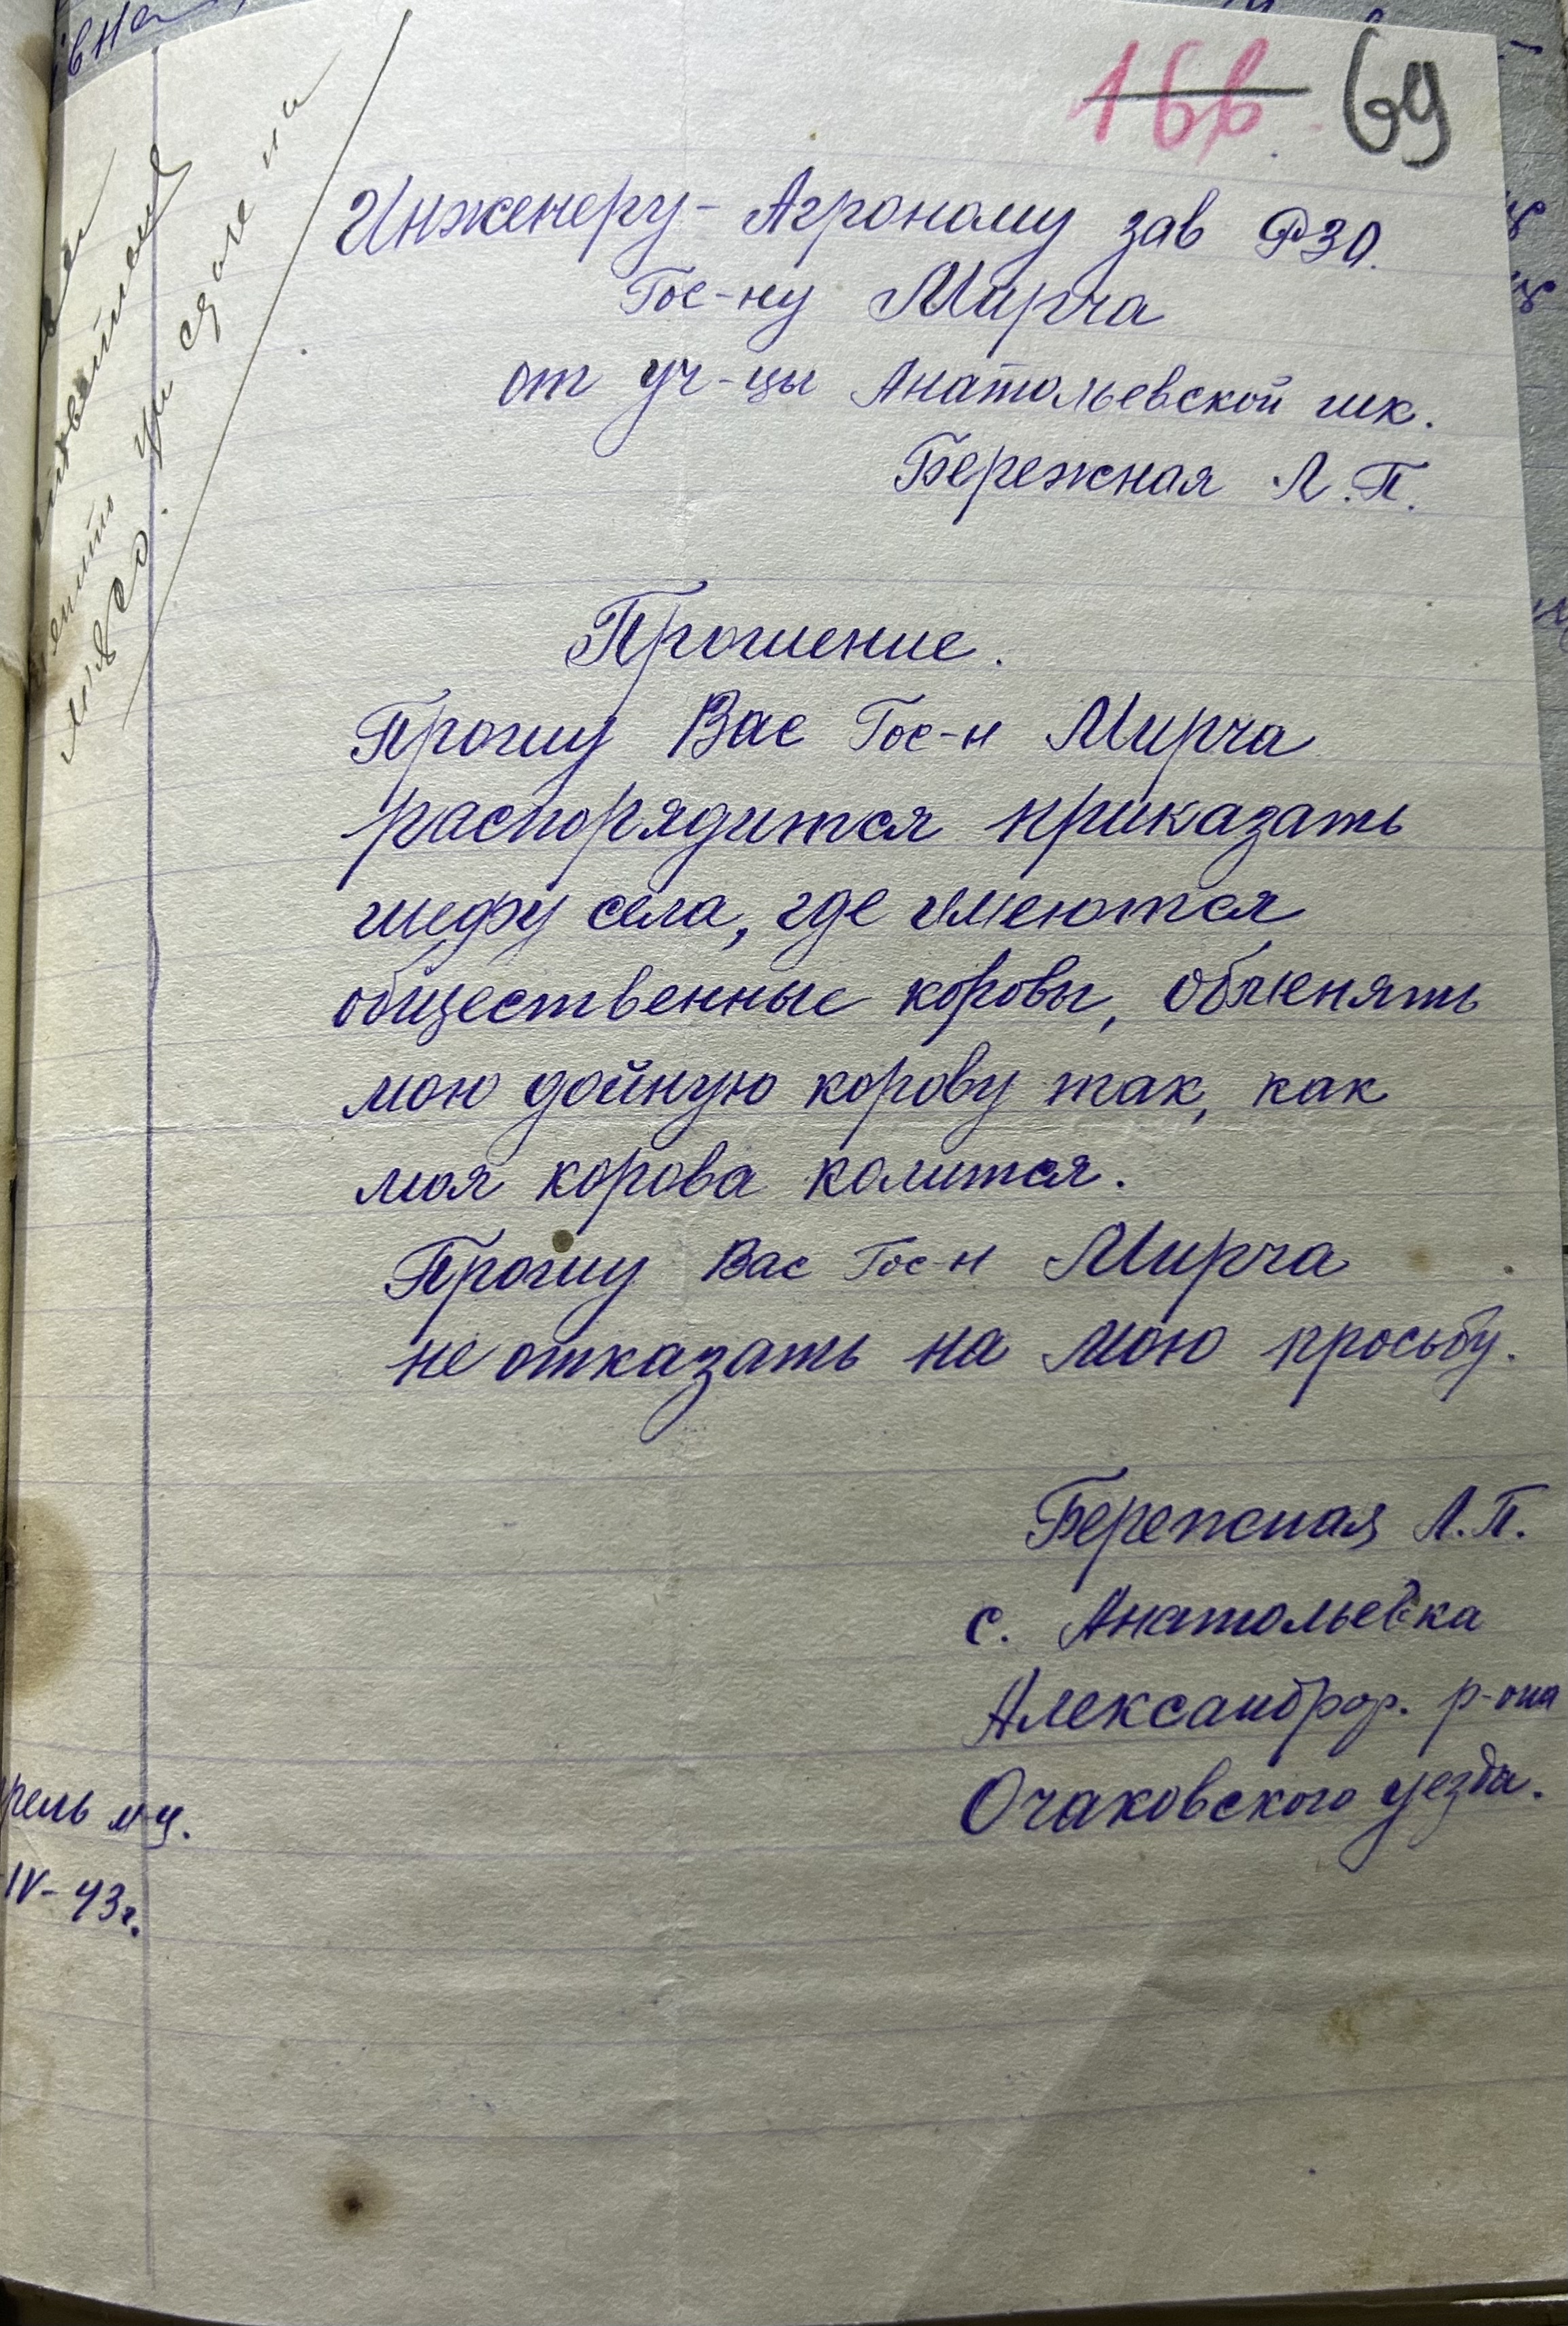 166 69
Инженеру - Агроному зав РЗО.
Гос-ну Мирча
от уч-цы Анатольевской шк.
Бережная Л.П.
Прошение.
Прошу Вас Гос-н Мирча
распорядится приказать
шефу села, где имеются
общественные коровы, обменять
мою дойную корову так, как
моя корова колится.
Прошу Вас Гос-н Мирча
не отказать на мою просьбу.
Бережная Л.П.
с. Анатольевка
р-она
Очаковского уезда.
рель м-ц.
IV - 43г.
при сдаче на
мясо.